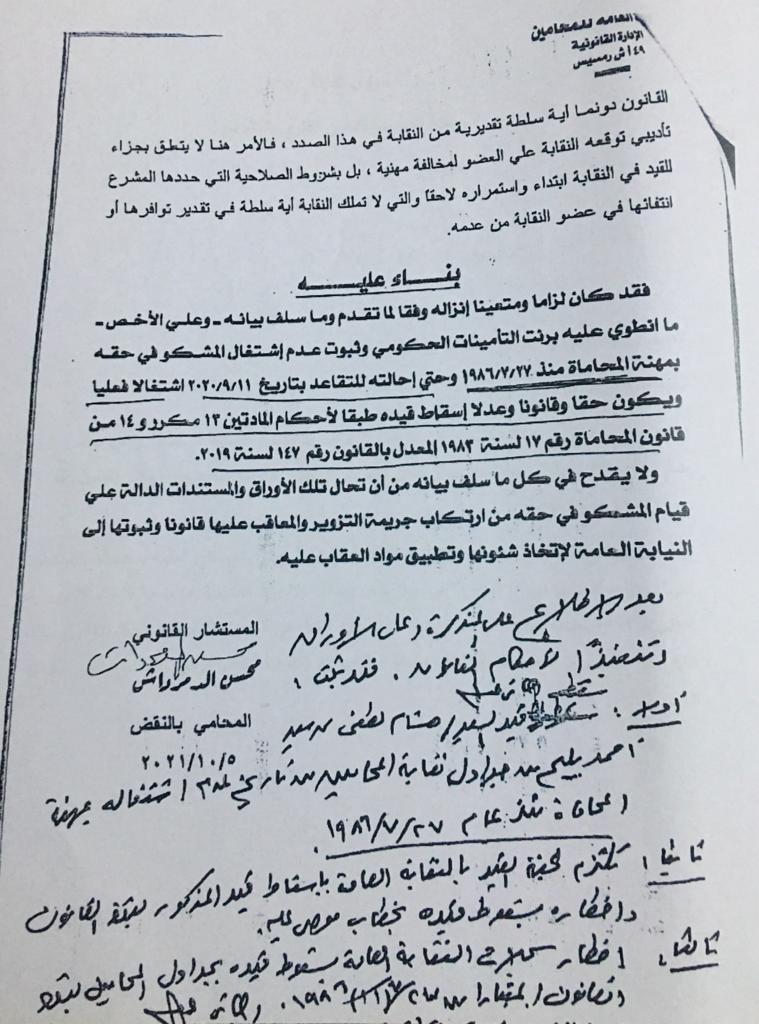 العامه للمحامين
الإدارة القانونية
٤٩ أ ش رمسيس
القانون دونما أية سلطة تقديرية من النقابة في هذا الصدد ، فالأمر هنا لا يتطق بجزاء
تأديبي توقعه النقابة علي العضو لمخالفة مهنية ، بل بشروط الصلاحية التي حددها المشرع
للقيد في النقابة ابتداء واستمراره لاحقاً والتي لا تملك النقابة أية سلطة في تقدير توافرها أو
انتفائها في عضو النقابة من عدمه.
بنـــاء عليـــه
فقد كان لزاما ومتعينا إنزاله وفقا لما تقدم وما سلف بيانه - وعلي الأخص -
ما انطوي عليه برنت التأمينات الحكومي وثبوت عدم إشتغال المشكو في حقه
بمهنة المحاماة منذ ١٩٨٦/٧/٢٧ وحتي إحالته للتقاعد بتاريخ ٢٠٢٠/٩/١١ اشتغالا فعليا
ويكون حقا وقانونا وعدلا إسقاط قيده طبقا لأحكام المادتين ١٣ مكرر و ١٤ من
قانون المحاماة رقم ١٧ لسنة ١٩٨٣ المعدل بالقانون رقم ١٤٧ لسنة ٢٠١٩.
ولا يقدح في كل ما سلف بيانه من أن تحال تلك الأوراق والمستندات الدالة علي
قيام المشكو في حقه من ارتكاب جريمة التزوير والمعاقب عليها قانونا وثبوتها إلى
النيابة العامة لإتخاذ شئونها وتطبيق مواد العقاب عليه.
المستشار القانوني
محسن الدمرداش
المحامي بالنقض
٢٠٢١/١٠/٥
بعد الاطلاع على المذكرة وعلى الأوراق
وتنفيذاً لأحكام القانون . فقد ثبت :
أولا : قيد السيد / هشام لطفى
احمد من جداول نقابة المحامين من تاريخ عدم اشتغاله بمهنة
المحاماة منذ عام ١٩٨٦/٧/٢٧ .
ثانيا : تلتزم لجنة القيد بالنقابة العامة بإسقاط قيد المذكور بقوة القانون
واخطاره بسقوط قيده بخطاب موصى عليه.
ثالثا : اخطار سجلات النقابة العامة بسقوط قيده بجداول المحامين بقوة
القانون اعتبارا من